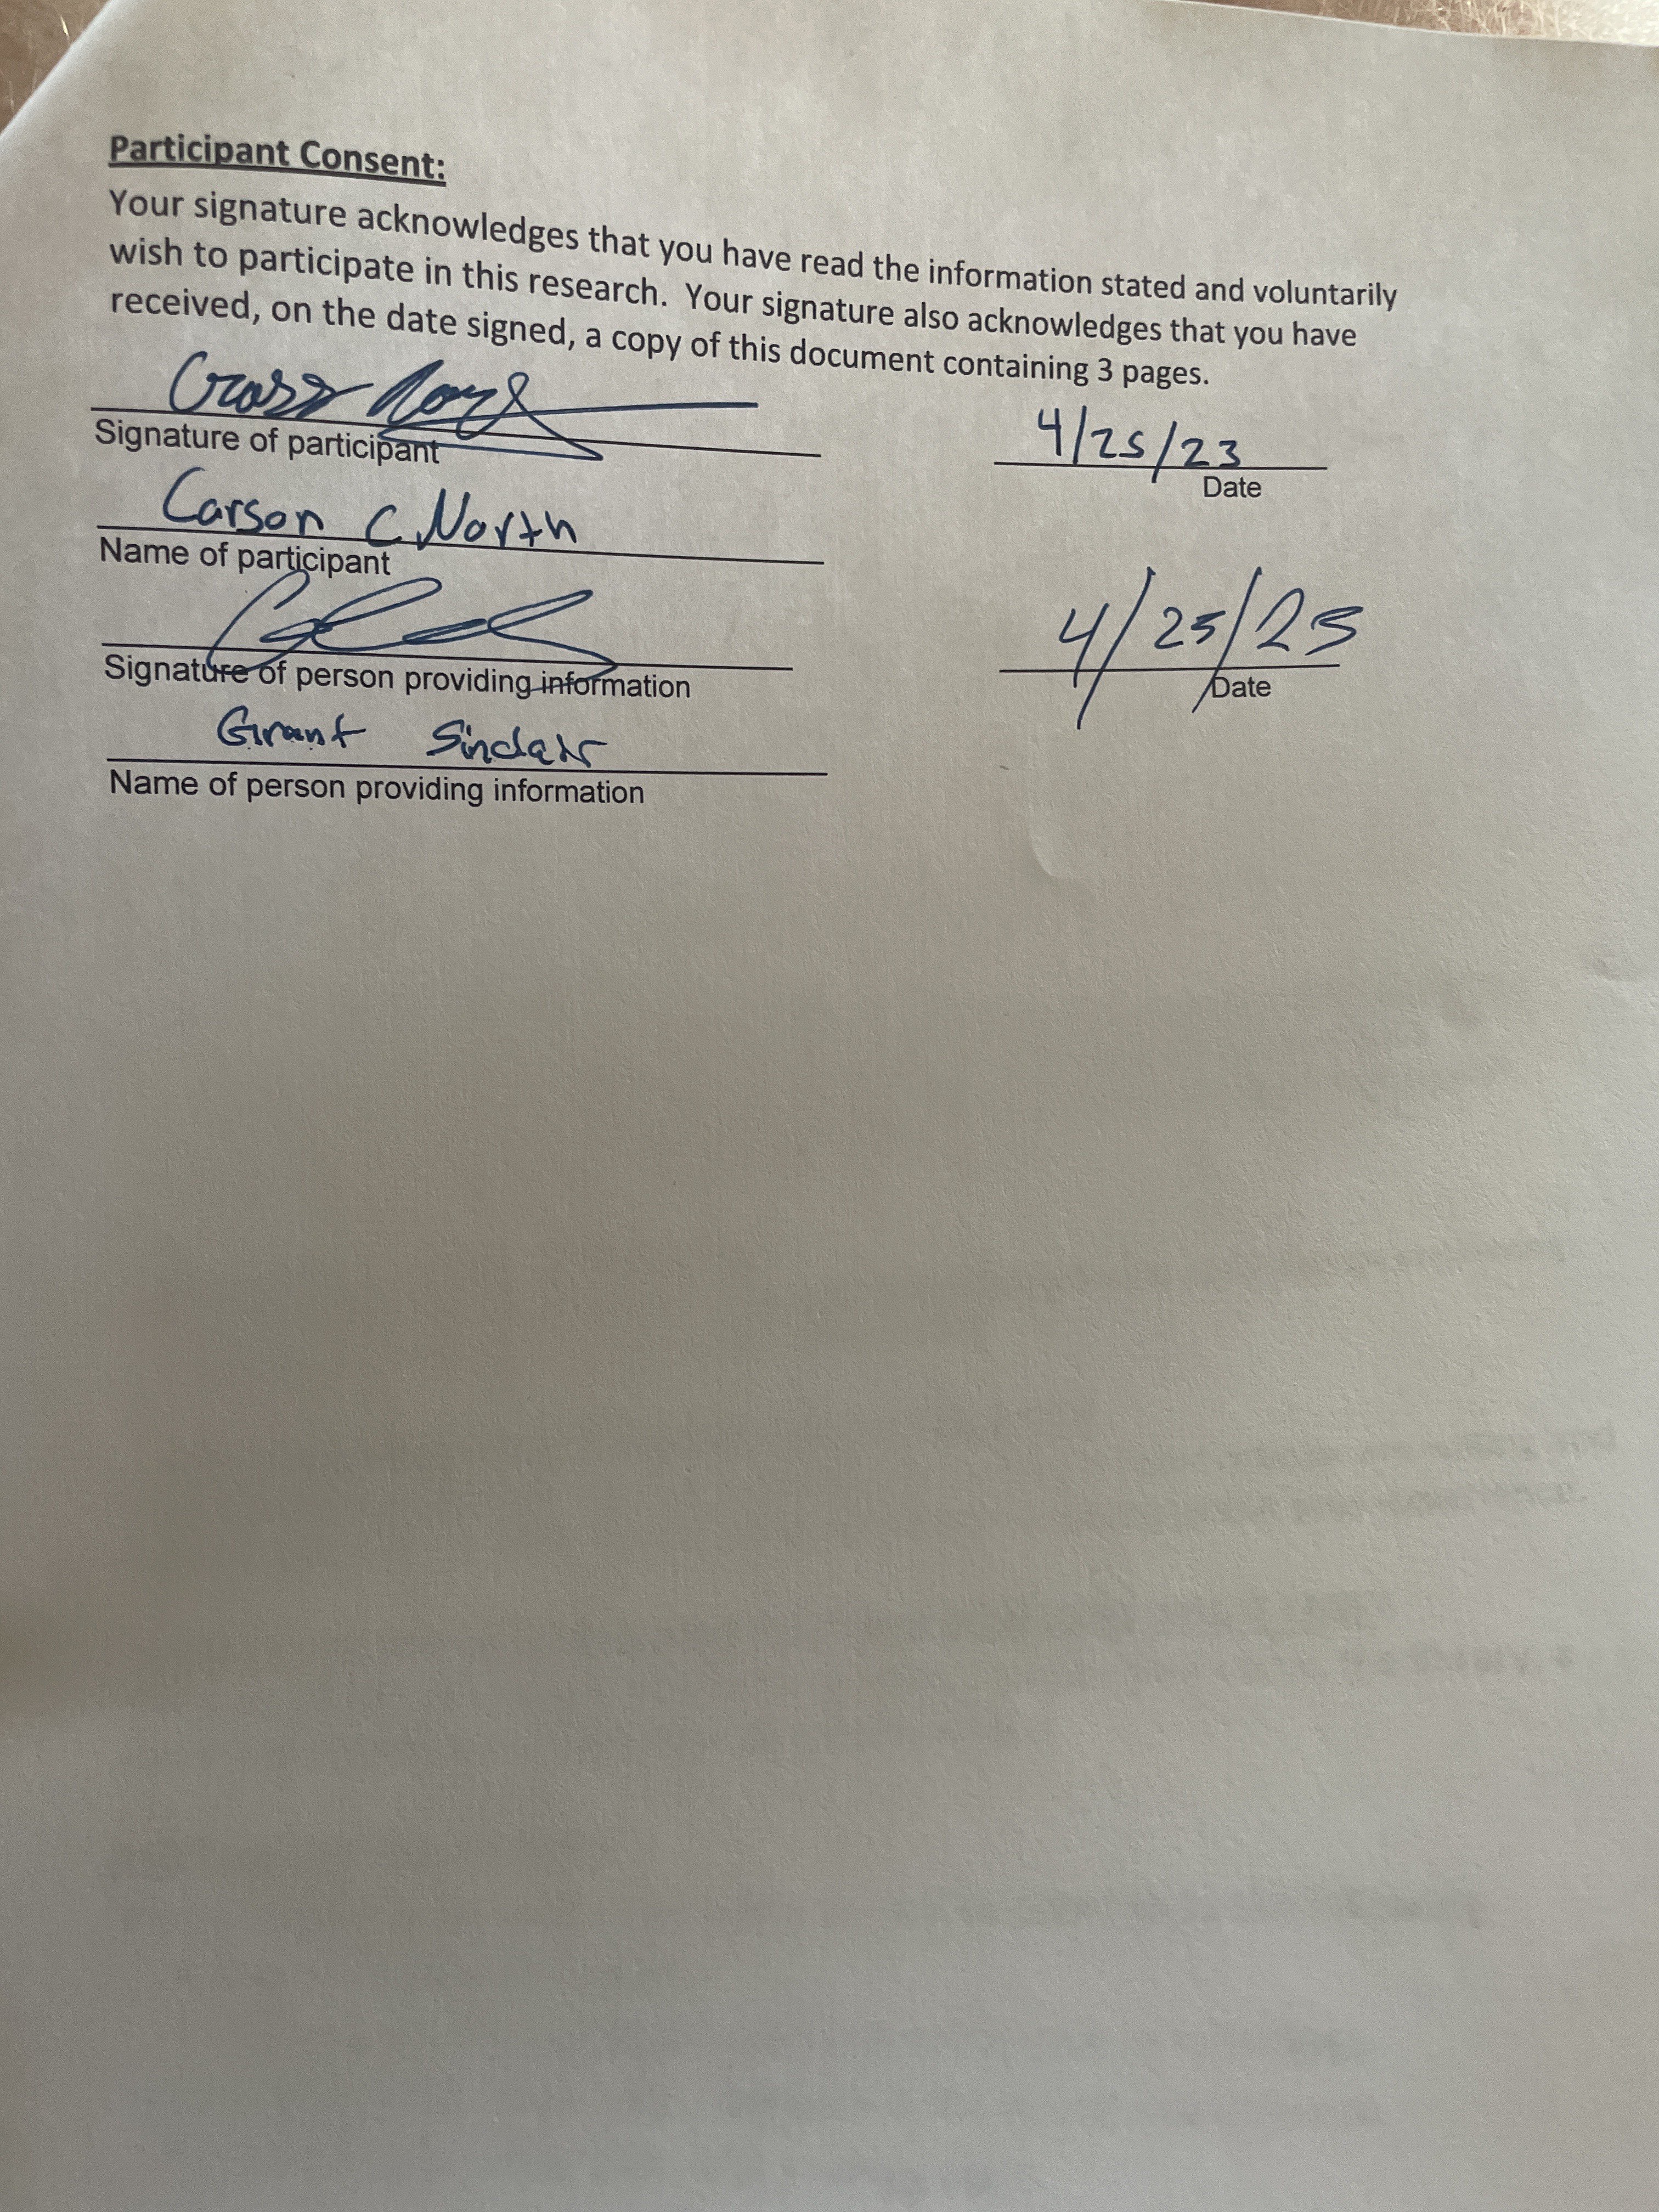 Participant Consent:
Your signature acknowledges that you have read the information stated and voluntarily
wish to participate in this research.  Your signature also acknowledges that you have
received, on the date signed, a copy of this document containing 3 pages.
4/25/23
Signature of participant
Date
Carson C North
Name of participant
4/25/23
Signature of person providing information
Date
Grant Sinclair
Name of person providing information